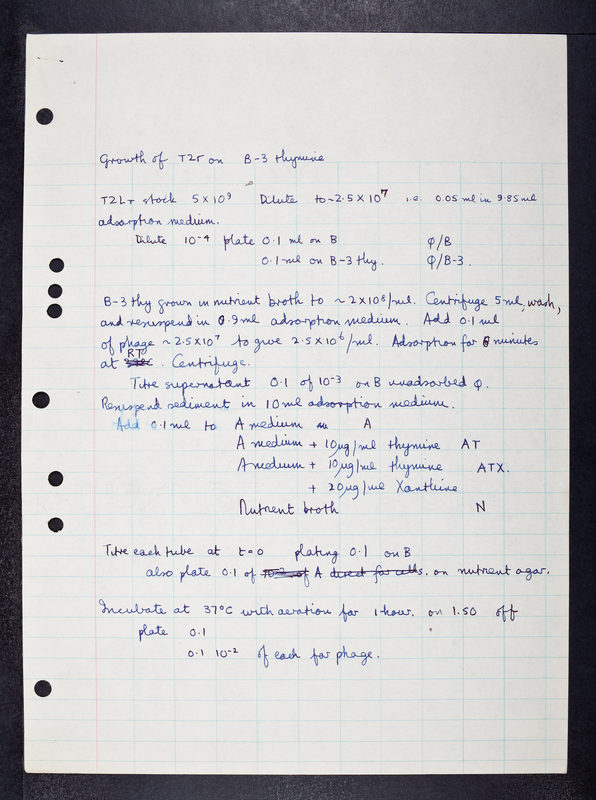 Growth of T2r on B-3 thymine
T2Lr stock 5 x 10⁹ Dilute to ~ 2.5 x 10⁷ i.e. 0.05 ml in 9.85 ml
adsorption medium.
Dilute 10⁻⁴ plate 0.1 ml on B φ/B
0.1 ml on B-3 thy. φ/B-3.
B-3 thy grown in nutrient broth to ~ 2x10⁸/ml. Centrifuge 5 ml, wash,
and resuspend in 0.9 ml adsorption medium. Add 0.1 ml
of phage ~ 2.5x10⁷ to give 2.5 x 10⁶/ml. Adsorption for minutes
RT
at . Centrifuge.
Titre supernatant 0.1 of 10⁻³ on B unadsorbed φ.
Resuspend sediment in 10 ml adsorption medium.
Add 0.1 ml to A medium A
A medium + 10 µg/ml thymine AT
A medium + 10 µg/ml thymine ATX.
+ 20 µg/ml Xanthine
Nutrient broth N
Titre each tube at t=0 plating 0.1 on B
also plate 0.1 of 10⁻² of A direct for cells. on nutrient agar.
Incubate at 37°C with aeration for 1 hour. on 1.50 off
plate 0.1
0.1 10⁻² of each for phage.